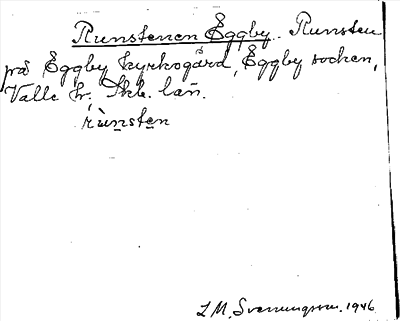 Runstenen Eggby. Runsten
på Eggby kyrkogård, Eggby socken,
Valle hr, Skb. län.
rùnsten
S. M. Svenungsson. 1946